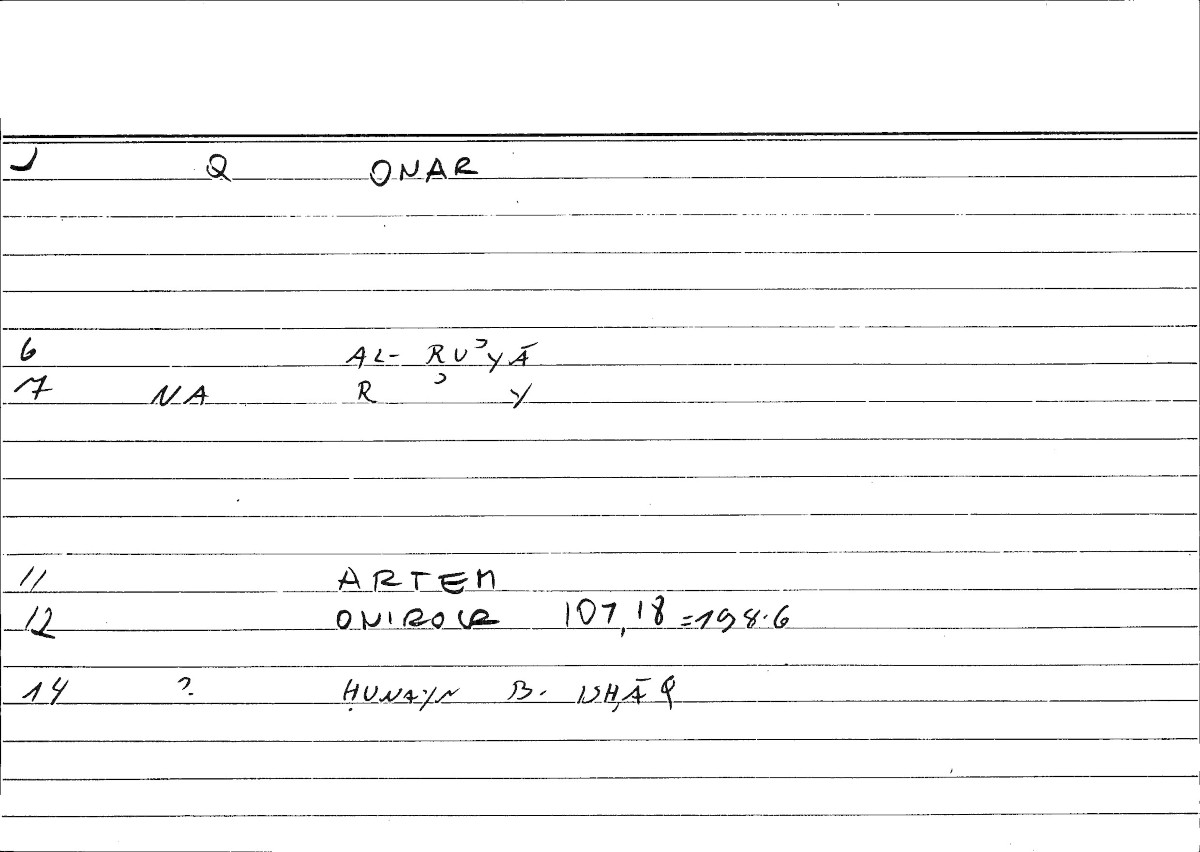 Q ONAR
6 AL- RUʾYĀ
7 NA R ʾ Y
11 ARTEM
12 ONIROCR 107,18 = 198.6
14 ? ḤUNAYN B. ISḤĀQ